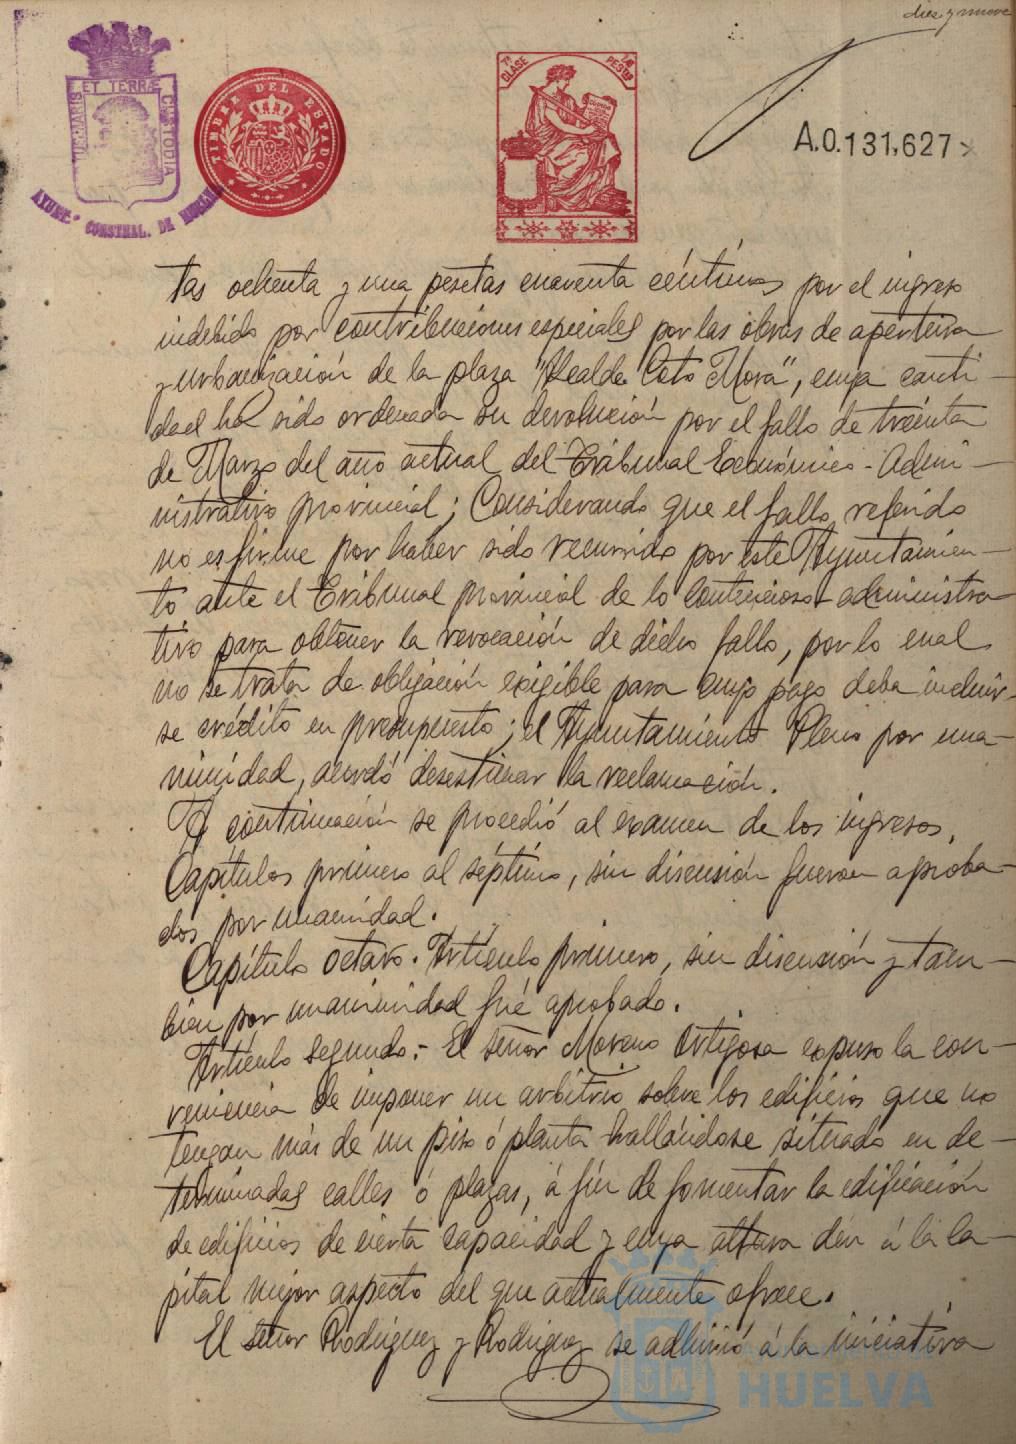 diez y nueve
PORTUS MARIS ET TERRÆ CUSTODIA
AYUNT.º CONSTNAL. DE HUELVA
TIMBRE DEL ESTADO
7ª CLASE
PESETAS
A.0.131,627
tas ochenta y una pesetas cuarenta céntimos por el ingreso
indebido por contribuciones especiales por las obras de apertura
y urbanización de la plaza "Alcalde Coto Mora", cuya canti-
dad ha sido ordenada su devolución por el fallo de treinta
de Marzo del año actual del Tribunal Económico-Admi-
nistrativo provincial; Considerando que el fallo referido
no es firme por haber sido recurrido por este Ayuntamien-
to ante el Tribunal provincial de lo Contencioso-administra-
tivo para obtener la revocación de dicho fallo, por lo cual
no se trata de obligación exigible para cuyo pago deba incluir-
se crédito en presupuesto; el Ayuntamiento Pleno por una-
nimidad, acordó desestimar la reclamación.
A continuación se procedió al examen de los ingresos.
Capítulos primero al séptimo, sin discusión fueron aproba-
dos por unanimidad.
Capítulo octavo. Artículo primero, sin discusión y tam-
bién por unanimidad fué aprobado.
Artículo segundo.- El señor Moreno Ortigosa expuso la con-
veniencia de imponer un arbitrio sobre los edificios que no
tengan más de un piso ó planta hallándose situado en de-
terminadas calles ó plazas, á fin de fomentar la edificación
de edificios de cierta capacidad y cuya altura den á la Ca-
pital mejor aspecto del que actualmente ofrece.
El señor Rodríguez y Rodríguez se adhirió á la iniciativa
HUELVA